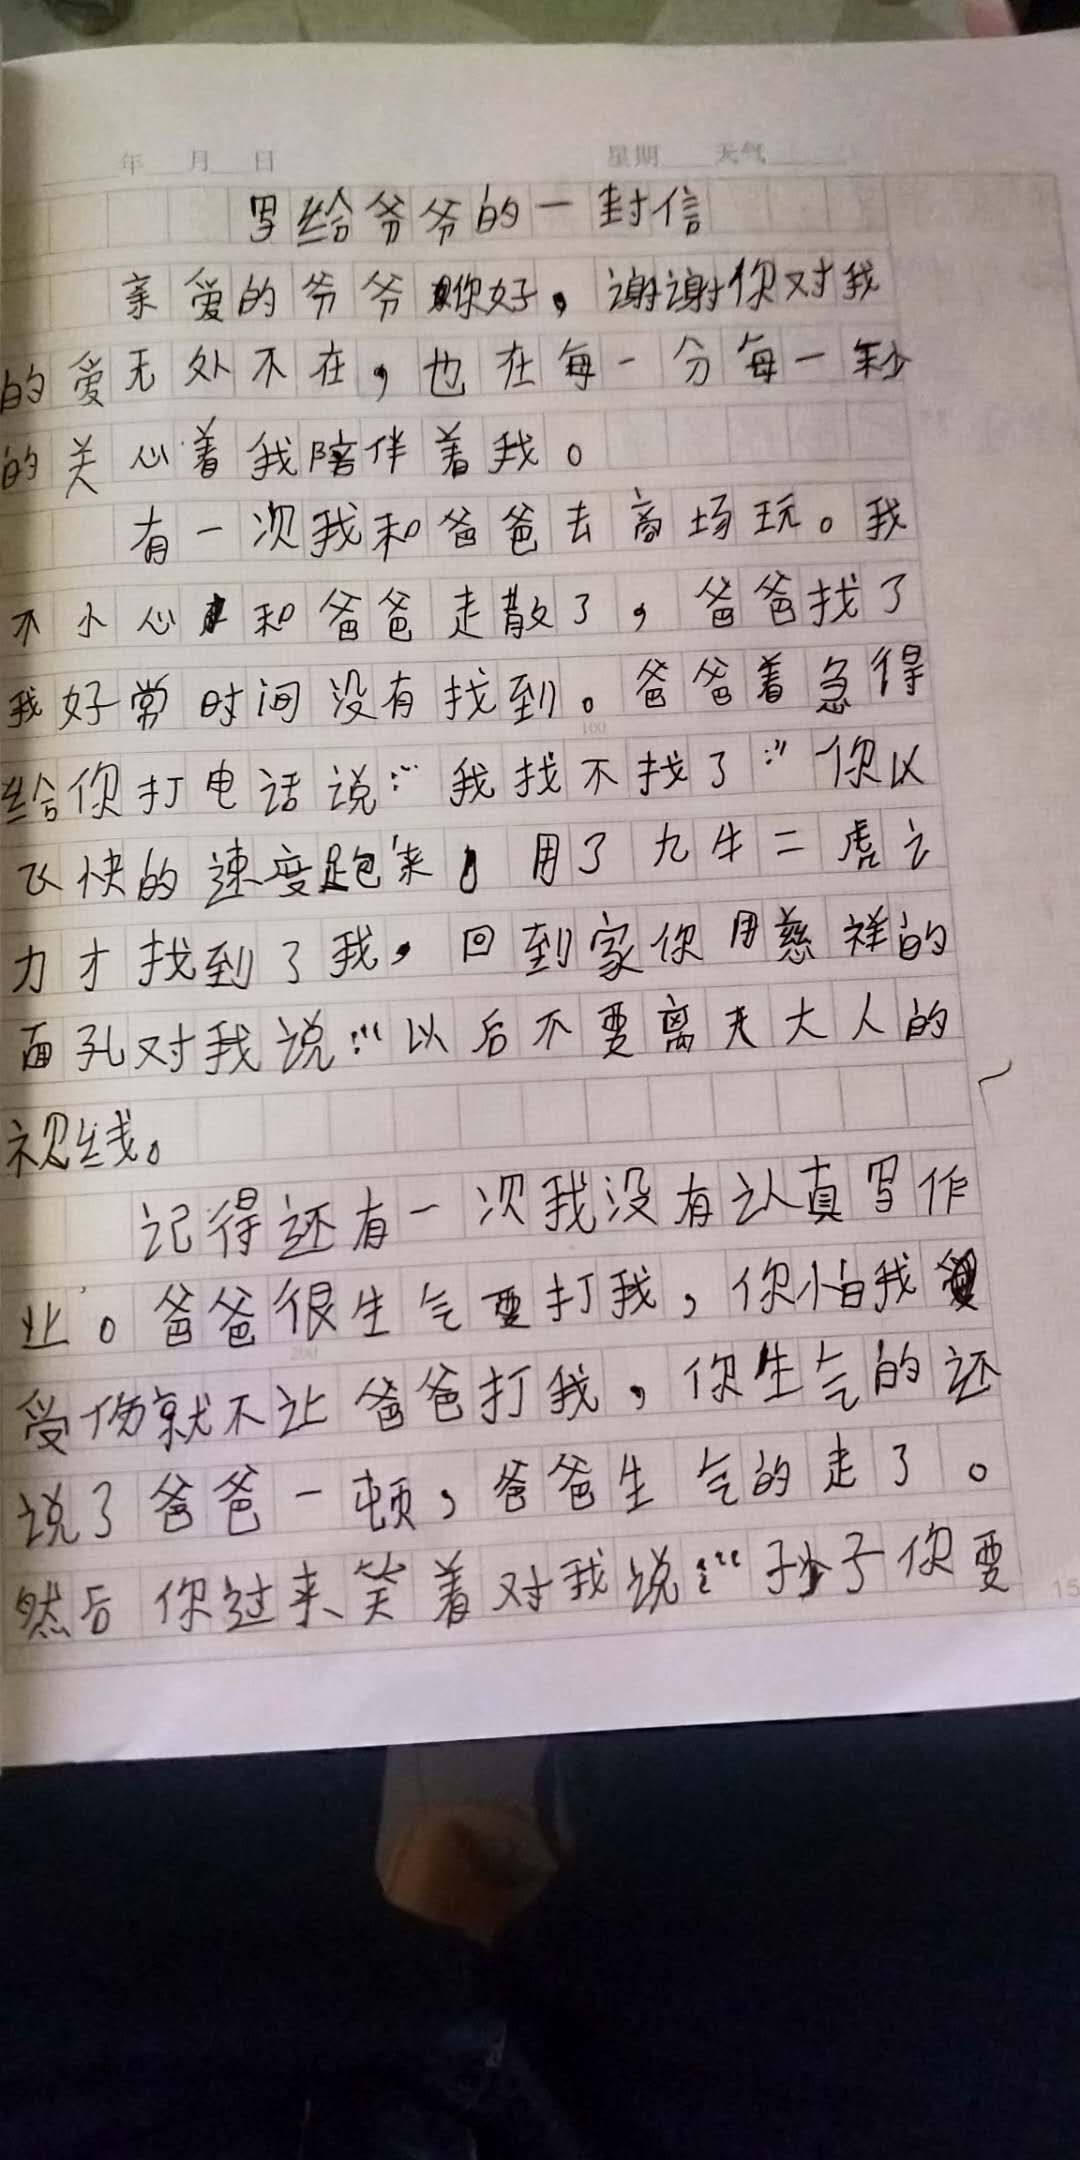 年 月 日 星期 天气
写给爷爷的一封信
亲爱的爷爷你好，谢谢你对我
的爱无处不在，也在每一分每一秒
的关心着我陪伴着我。
有一次我和爸爸去商场玩。我
不小心和爸爸走散了，爸爸找了
我好常时间没有找到。爸爸着急得
给你打电话说：“我找不找了：”你以
飞快的速度跑来，用了九牛二虎之
力才找到了我，回到家你用慈祥的
面孔对我说：“以后不要离夫大人的
视线。
记得还有一次我没有认真写作
业。爸爸很生气要打我，你怕我
受伤就不让爸爸打我，你生气的还
说了爸爸一顿，爸爸生气的走了。
然后你过来笑着对我说：“孙子你要
100
200
15